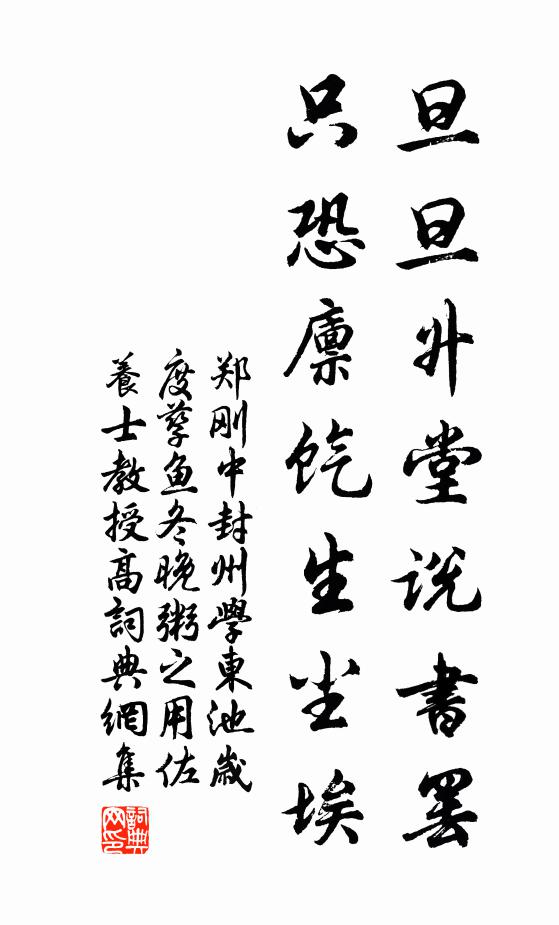 旦旦升堂说書罢
只恐廪饩生尘埃
郑刚中封州學東池歲
度孳鱼冬晚粥之用佐
養士教授高詞典網集
詞典网印